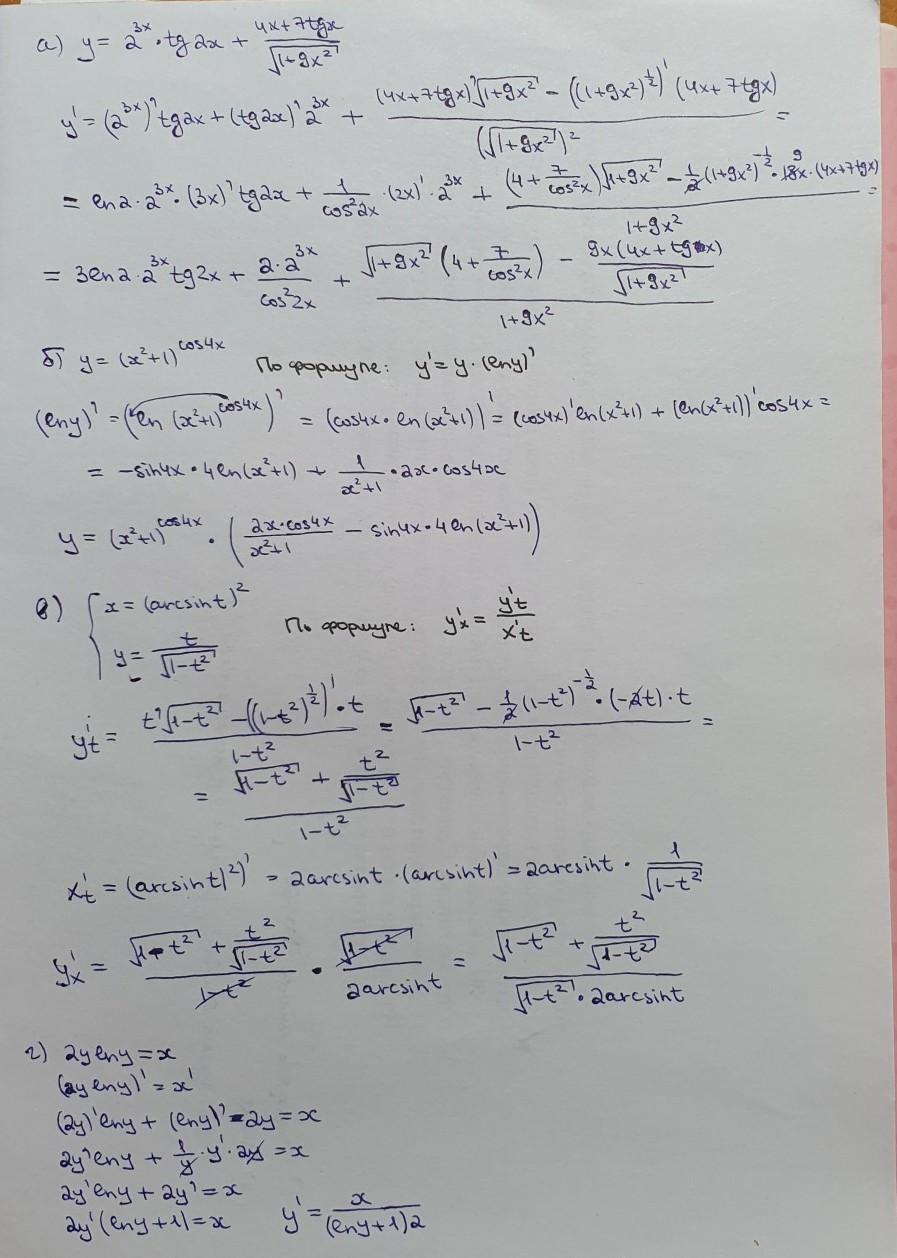 а) y = 2^{3x} · tg2x + \frac{4x+7tgx}{\sqrt{1+9x^2}}
y' = (2^{3x})' tg2x + (tg2x)' 2^{3x} + \frac{(4x+7tgx)'\sqrt{1+9x^2} - ((1+9x^2)^{\frac{1}{2}})' (4x+7tgx)}{(\sqrt{1+9x^2})^2} =
= ln2 · 2^{3x} · (3x)' tg2x + \frac{1}{cos^2 2x} · (2x)' · 2^{3x} + \frac{(4+\frac{7}{cos^2x})\sqrt{1+9x^2} - \frac{1}{2}(1+9x^2)^{-\frac{1}{2}} · 18x · (4x+7tgx)}{1+9x^2} =
= 3ln2 · 2^{3x} tg2x + \frac{2·2^{3x}}{cos^2 2x} + \frac{\sqrt{1+9x^2}(4+\frac{7}{cos^2x}) - \frac{9x(4x+tgx)}{\sqrt{1+9x^2}}}{1+9x^2}
б) y = (x^2+1)^{cos4x} По формуле: y' = y · (lny)'
(lny)' = (ln(x^2+1)^{cos4x})' = (cos4x · ln(x^2+1))' = (cos4x)' ln(x^2+1) + (ln(x^2+1))' cos4x =
= -sin4x · 4ln(x^2+1) + \frac{1}{x^2+1} · 2x · cos4x
y = (x^2+1)^{cos4x} · (\frac{2x·cos4x}{x^2+1} - sin4x · 4ln(x^2+1))
в) { x = (arcsint)^2
y = \frac{t}{\sqrt{1-t^2}} По формуле: y'x = \frac{y't}{x't}
y't = \frac{t'\sqrt{1-t^2} - ((1-t^2)^{\frac{1}{2}})' · t}{1-t^2} = \frac{\sqrt{1-t^2} - \frac{1}{2}(1-t^2)^{-\frac{1}{2}} · (-2t) · t}{1-t^2} =
= \frac{\sqrt{1-t^2} + \frac{t^2}{\sqrt{1-t^2}}}{1-t^2}
x't = (arcsint)^2)' = 2arcsint · (arcsint)' = 2arcsint · \frac{1}{\sqrt{1-t^2}}
y'x = \frac{\sqrt{1-t^2} + \frac{t^2}{\sqrt{1-t^2}}}{1-t^2} · \frac{\sqrt{1-t^2}}{2arcsint} = \frac{\sqrt{1-t^2} + \frac{t^2}{\sqrt{1-t^2}}}{\sqrt{1-t^2} · 2arcsint}
г) 2y lny = x
(2y lny)' = x'
(2y)' lny + (lny)' 2y = x
2y' lny + \frac{1}{y} · y' · 2y = x
2y' lny + 2y' = x
2y' (lny+1) = x y' = \frac{x}{(lny+1)2}